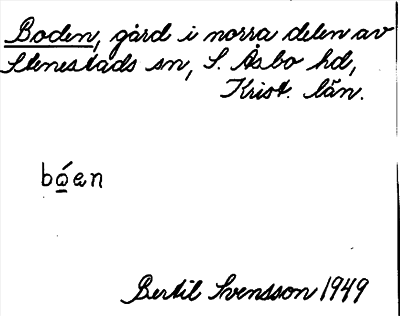 Boden, gård i norra delen av
Stenestads sn, S. Åsbo hd,
Krist. län.
bó̲en
Bertil Svensson 1949